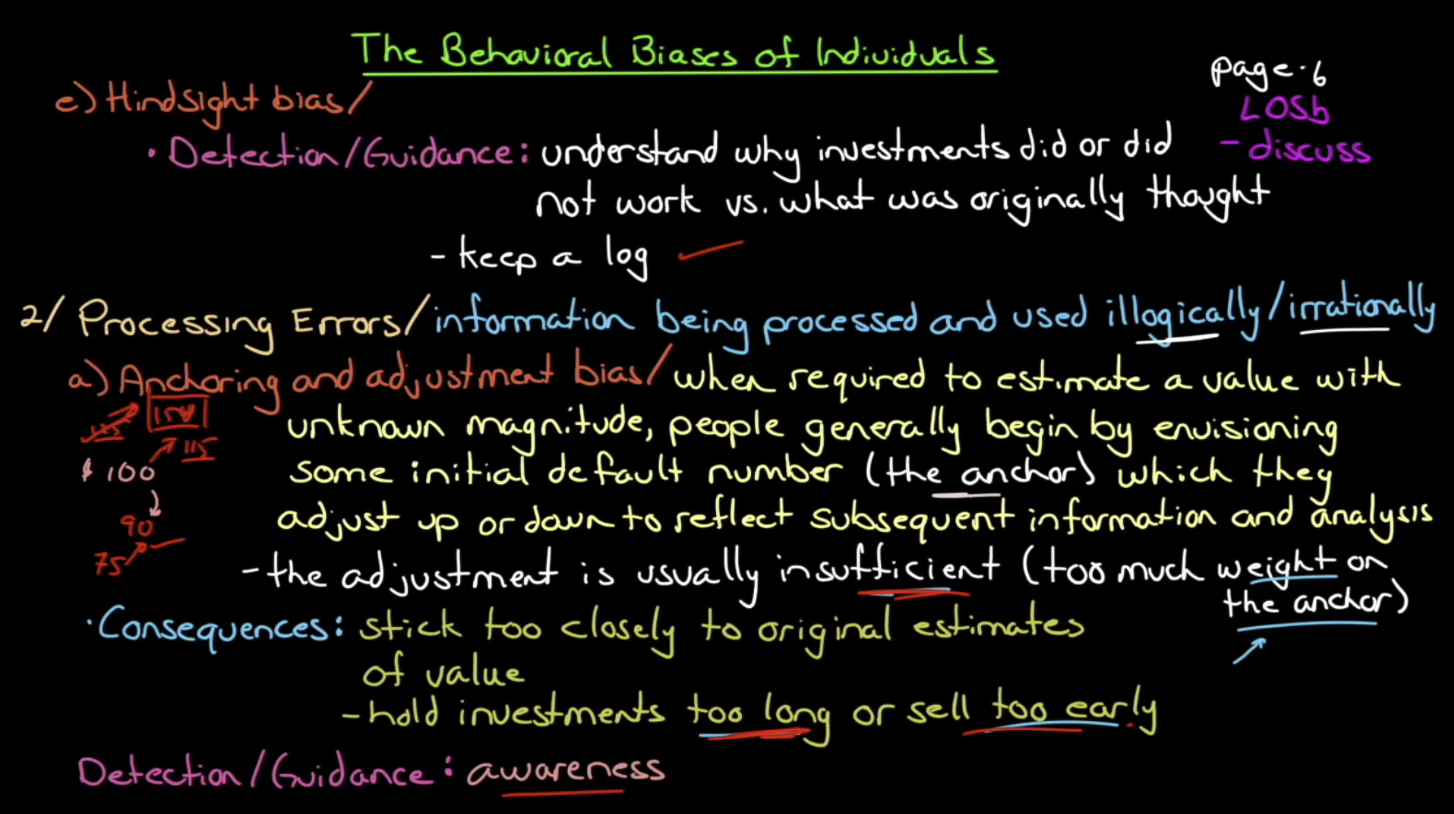 The Behavioral Biases of Individuals
page·6
LOSb
- discuss
e) Hindsight bias/
· Detection/Guidance: understand why investments did or did
not work vs. what was originally thought
- keep a log
2/ Processing Errors/ information being processed and used illogically/irrationally
a) Anchoring and adjustment bias/ when required to estimate a value with
unknown magnitude, people generally begin by envisioning
some initial default number (the anchor) which they
adjust up or down to reflect subsequent information and analysis
115
$100
90
75
- the adjustment is usually insufficient (too much weight on
the anchor)
· Consequences: stick too closely to original estimates
of value
- hold investments too long or sell too early
Detection/Guidance: awareness